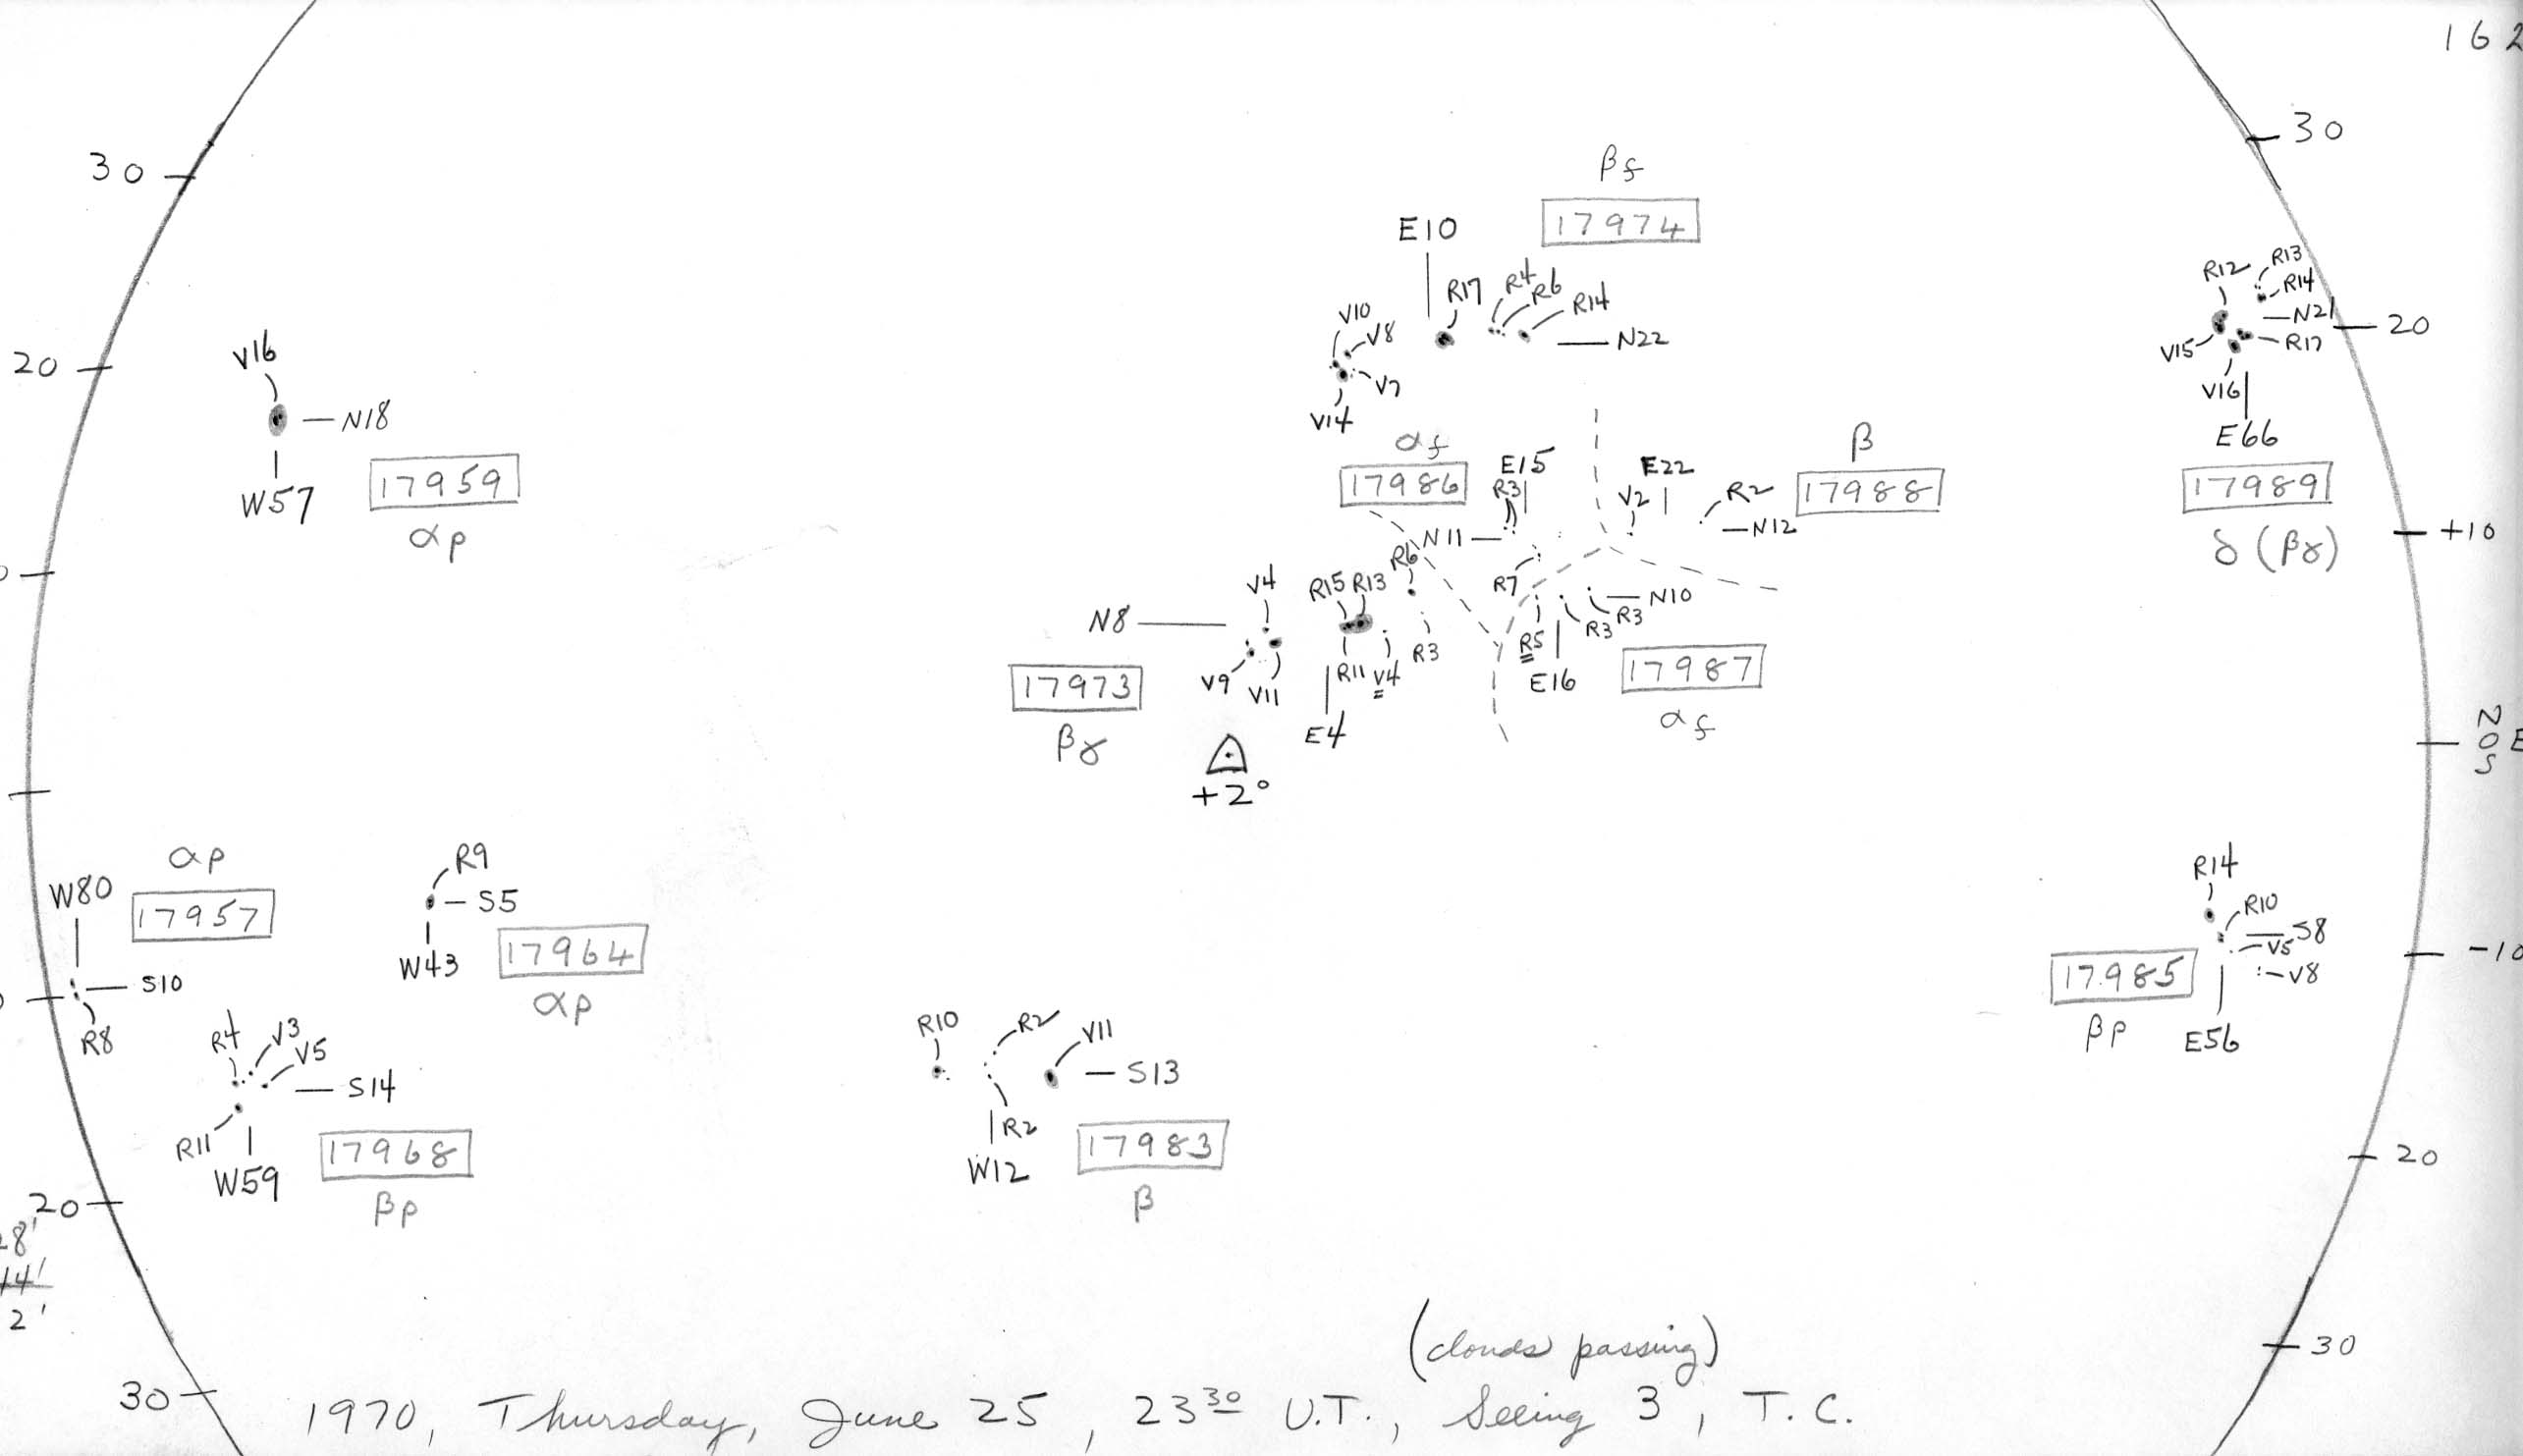 162
30
30
βf
17974
E10
R17
R4
R6
R14
R12
R13
R14
N21
20
V15
R17
V16
E66
17989
δ (βγ)
V10
V8
N22
V7
V14
20
V16
N18
W57
17959
αp
αf
17986
E15
R3
E22
V2
R2
β
17988
N12
+10
N11
R6
R7
V4
R15 R13
N8
N10
R3
R3
R5
E16
17987
αf
R3
R11
V4
V9
V11
17973
βγ
E4
+2°
N
O E
S
αp
W80
17957
S10
R8
R9
S5
W43
17964
αp
R14
R10
S8
V5
V8
-10
17985
βp
E56
R4
V3
V5
S14
R11
W59
17968
βp
R10
R2
V11
S13
R2
W12
17983
β
20
20
28'
14'
2'
30
30
(clouds passing)
1970, Thursday, June 25, 23 30 U.T., Seeing 3, T.C.